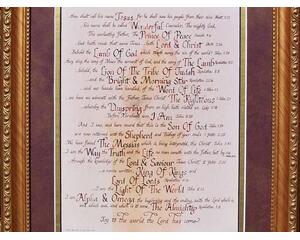 shall call his name Jesus for he shall save his people from their sins
his name shall be called Wonderful Counsellor, The mighty God,
The everlasting Father, The Prince Of Peace
God hath made that same Jesus Both Lord & Christ
Behold the Lamb Of God which taketh away the sin of the world
they sing the song of Moses the servant of God, and the song of The Lamb
Behold, the Lion Of The Tribe Of Judah
and the Bright & Morning Star
our hands have handled, of the Word Of Life
we have an advocate with the Father Jesus Christ The Righteous
whereby the Dayspring from on high hath visited us
Before Abraham was I Am
And I saw, and bare record that this is the Son Of God
are now returned unto the Shepherd and Bishop of your souls
We have found The Messias which is being interpreted, the Christ
I am the Way the Truth and the Life no man cometh unto the Father but by me
through the knowledge of the Lord & Saviour Jesus Christ
a name written, King Of Kings
Lord Of Lords
I am the Light Of The World
I am Alpha & Omega the beginning and the ending, saith the Lord which is
and which was, and which is to come, The Almighty
Joy to the world the Lord has come